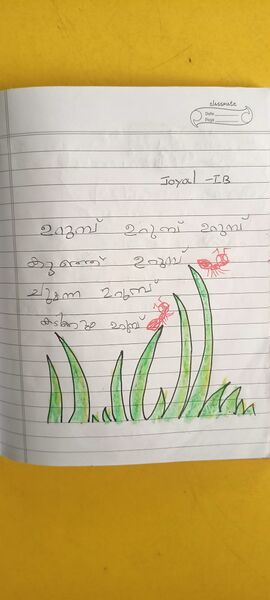 classmate
Date
Page
Joyal - I B
ഉറുമ്പ് ഉറുമ്പ് ഉറുമ്പ്
ഉറുമ്പ്
ചുമന്ന ഉറുമ്പ്
കടിക്കും ഉറുമ്പ്